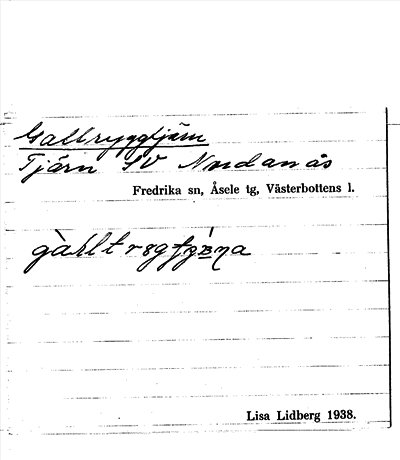 Galtryggtjärn
Tjärn SV Nordanås
Fredrika sn, Åsele tg, Västerbottens l.
Lisa Lidberg 1938.